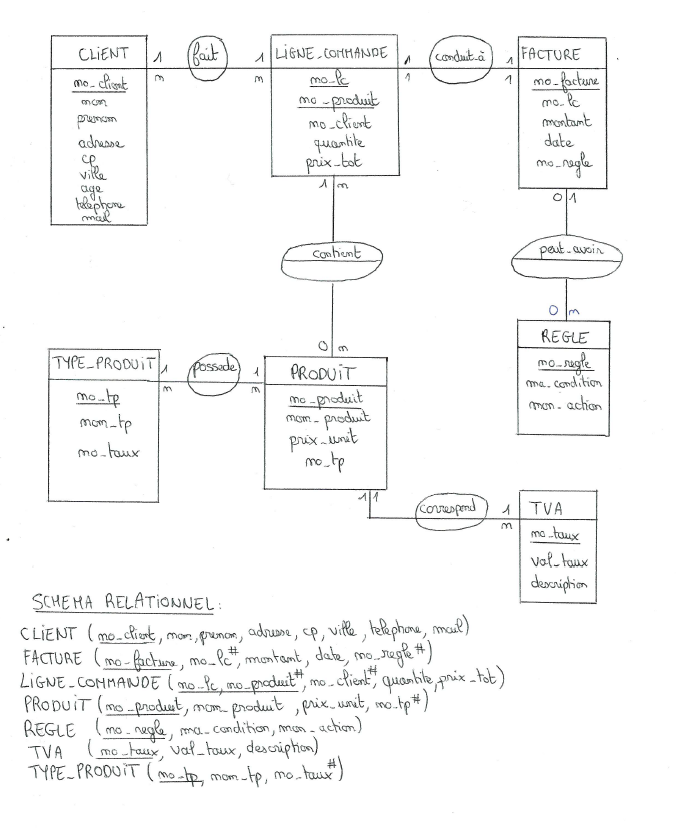 CLIENT
no_client
nom
prenom
adresse
cp
ville
age
telephone
mail
1 n
fait
1 n
LIGNE_COMMANDE
no_lc
no_produit
no_client
quantite
prix_tot
1 1
conduit-à
1 1
FACTURE
no_facture
no_lc
montant
date
no_regle
1 n
contient
0 n
0 1
peut_avoir
0 n
REGLE
no_regle
ma_condition
mon_action
TYPE_PRODUIT
no_tp
nom_tp
no_taux
1 n
possede
1 n
PRODUIT
no_produit
nom_produit
prix_unit
no_tp
1 1
correspond
1 n
TVA
no_taux
val_taux
description
SCHEMA RELATIONNEL :
CLIENT (no_client, nom, prenom, adresse, cp, ville, telephone, mail)
FACTURE (no_facture, no_lc#, montant, date, no_regle#)
LIGNE_COMMANDE (no_lc, no_produit#, no_client#, quantite, prix_tot)
PRODUIT (no_produit, nom_produit, prix_unit, no_tp#)
REGLE (no_regle, ma_condition, mon_action)
TVA (no_taux, val_taux, description)
TYPE_PRODUIT (no_tp, nom_tp, no_taux#)